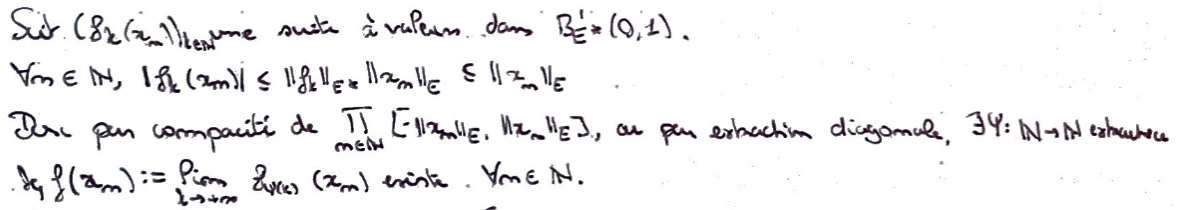 Soit (f_k(x_n))_{k∈ℕ} une suite à valeurs dans B'_{E*}(0,1).
∀n ∈ ℕ, |f_k(x_n)| ≤ ‖f_k‖_{E*} ‖x_n‖_E ≤ ‖x_n‖_E
Donc par compacité de ∏_{n∈ℕ} [-‖x_n‖_E, ‖x_n‖_E], ou par extraction diagonale, ∃φ: ℕ→ℕ extractrice
tq f(x_n) := lim_{k→+∞} f_{φ(k)} (x_n) existe. ∀n ∈ ℕ.